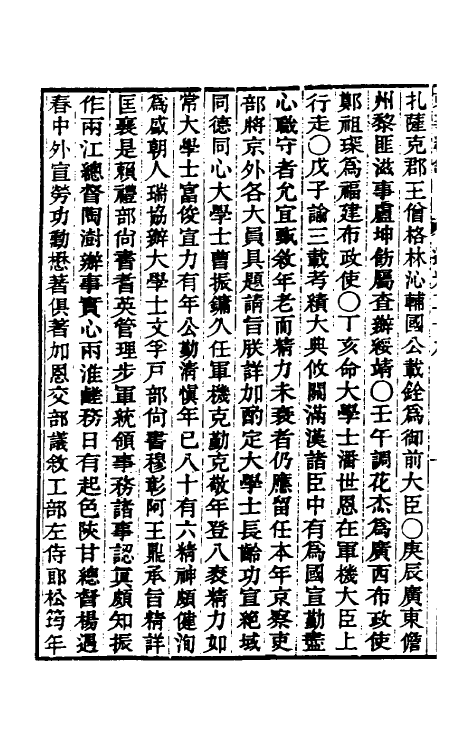 札薩克郡王僧格林沁輔國公載銓為御前大臣〇庚辰廣東儋
州黎匪滋事盧坤飭屬查辦綏靖〇壬午調花杰為廣西布政使
鄭祖琛為福建布政使〇丁亥命大學士潘世恩在軍機大臣上
行走〇戊子諭三載考績大典攸關滿漢諸臣中有為國宣勤盡
心職守者允宜甄敘年老而精力未衰者仍應留任本年京察吏
部將京外各大員具題請旨朕詳加酌定大學士長齡功宣絕域
同德同心大學士曹振鏞久任軍機克勤克敬年登八袠精力如
常大學士富俊宣力有年公勤清慎年已八十有六精神頗健洵
為盛朝人瑞協辦大學士文孚戶部尚書穆彰阿王鼎承旨精詳
匡襄是賴禮部尚書耆英管理步軍統領事務諸事認眞頗知振
作兩江總督陶澍辦事實心兩淮鹺務日有起色陝甘總督楊遇
春中外宣勞功勛懋著俱著加恩交部議敘工部左侍郎松筠年